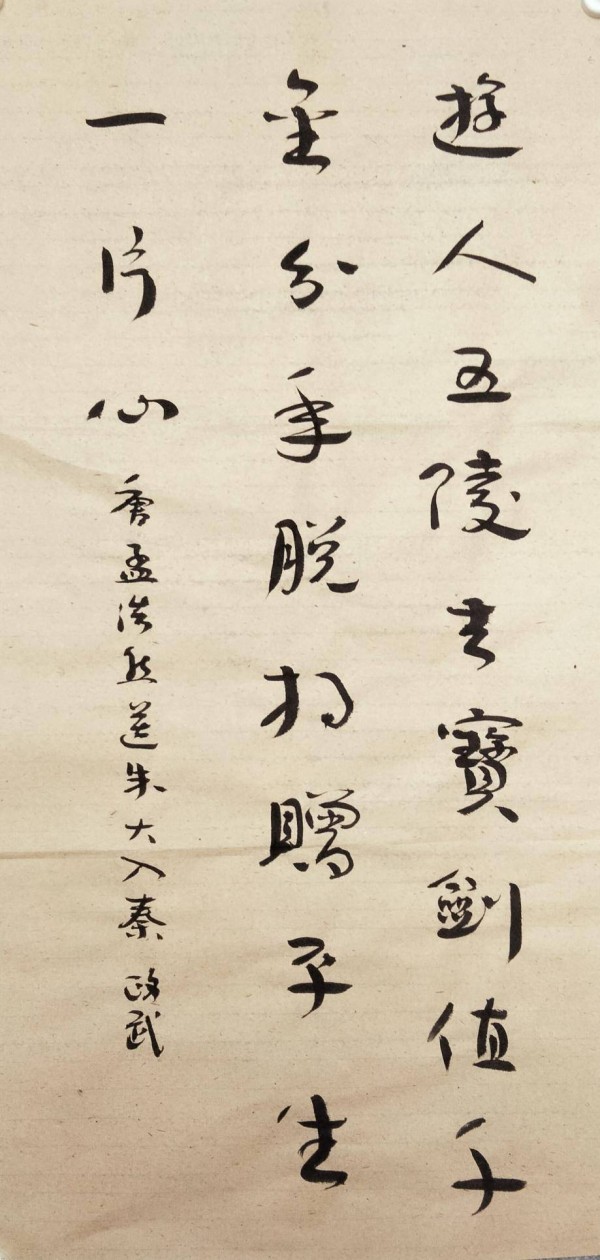 遊人五陵去寶劍值千
金分手脱相贈平生
一片心
唐孟浩然送朱大入秦 政武